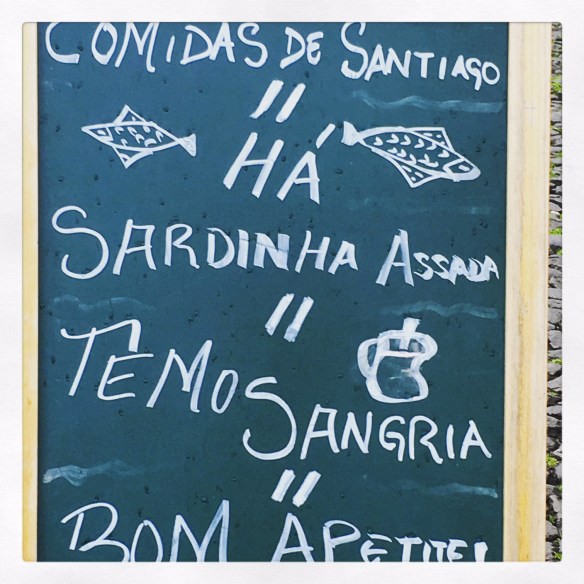 COMIDAS DE SANTIAGO
"
HÁ
SARDINHA ASSADA
"
TEMOS
SANGRIA
"
BOM APETITE!